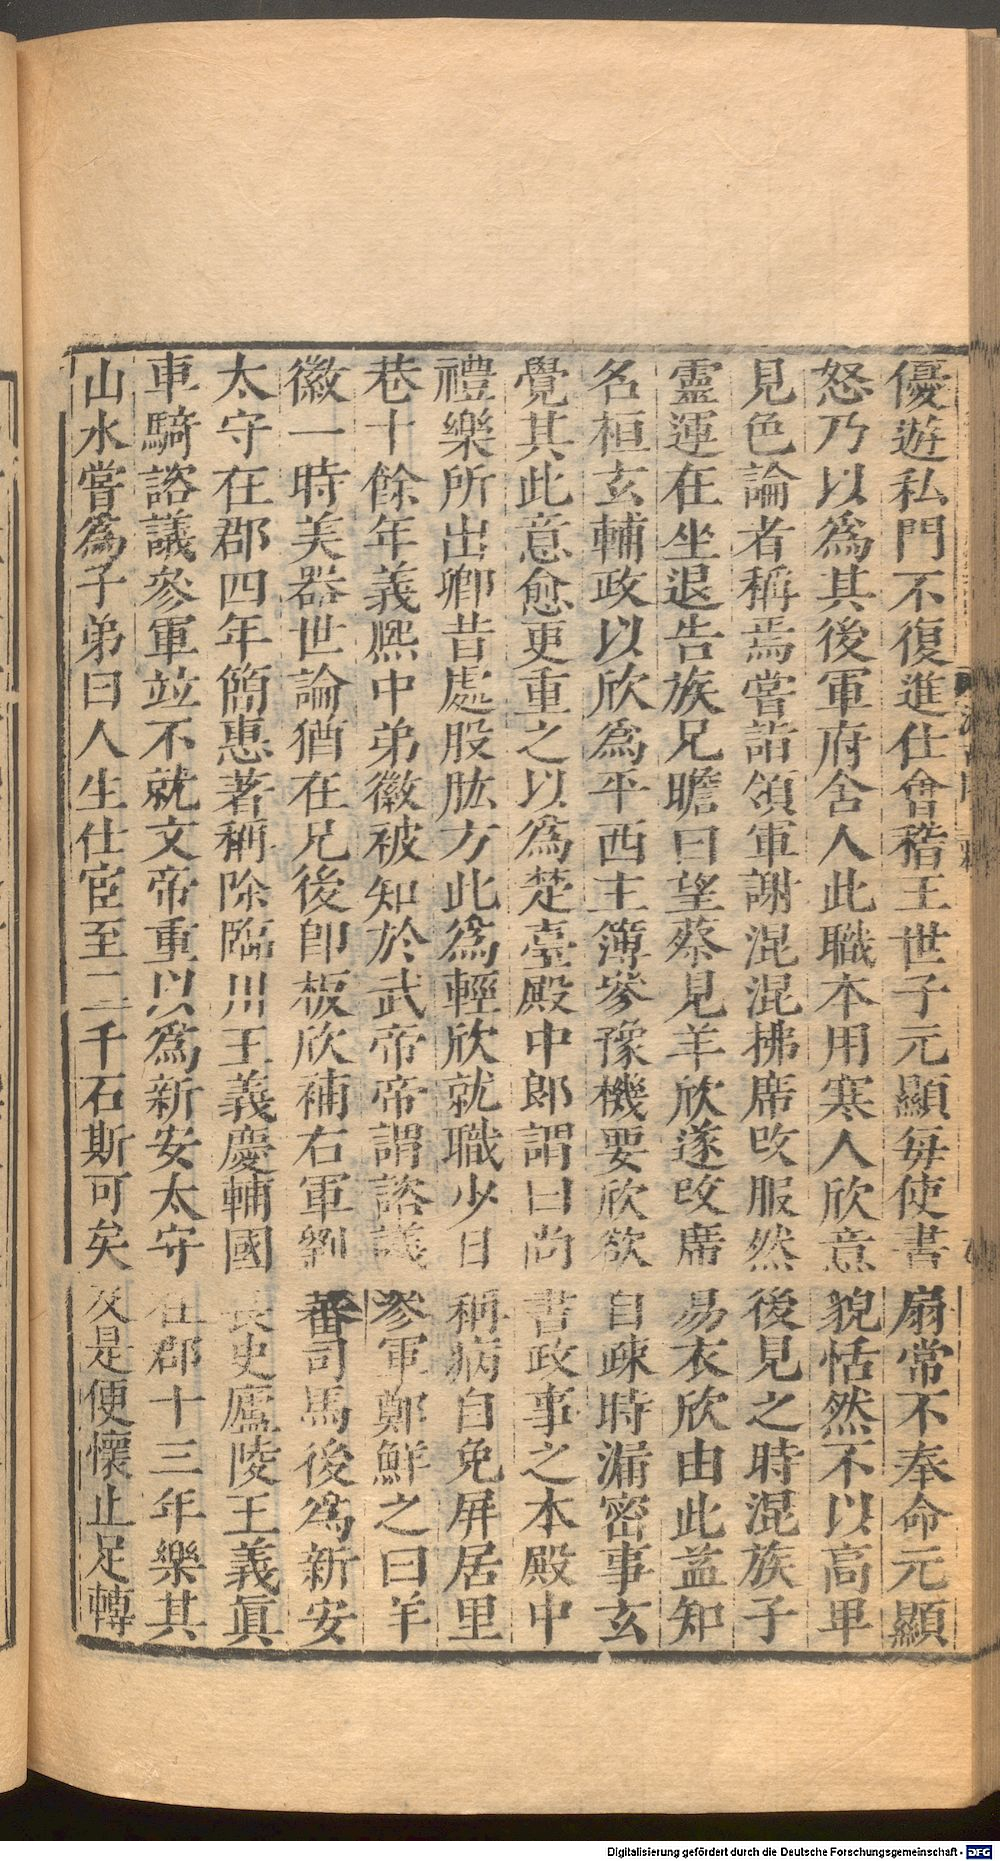 優遊私門不復進仕會稽王世子元顯每使書扇常不奉命元顯
怒乃以爲其後軍府舍人此職本用寒人欣意貌恬然不以高卑
見色論者稱焉嘗詣領軍謝混混拂席改服然後見之時混族子
靈運在坐退告族兄瞻曰望蔡見羊欣遂改席易衣欣由此益知
名桓玄輔政以欣爲平西主簿參豫機要欣欲自疎時漏密事玄
覺其此意愈更重之以爲楚臺殿中郎謂曰尚書政事之本殿中
禮樂所出卿昔處股肱方此爲輕欣就職少日稱病自免屏居里
巷十餘年義熙中弟徽被知於武帝帝謂諮議參軍鄭鮮之曰羊
徽一時美器世論猶在兄後卽板欣補右軍劉蕃司馬後爲新安
太守在郡四年簡惠著稱除臨川王義慶輔國長史廬陵王義眞
車騎諮議參軍竝不就文帝重以爲新安太守在郡十三年樂其
山水嘗爲子弟曰人生仕宦至二千石斯可矣及是便懷止足轉
Digitalisierung gefördert durch die Deutsche Forschungsgemeinschaft - DFG